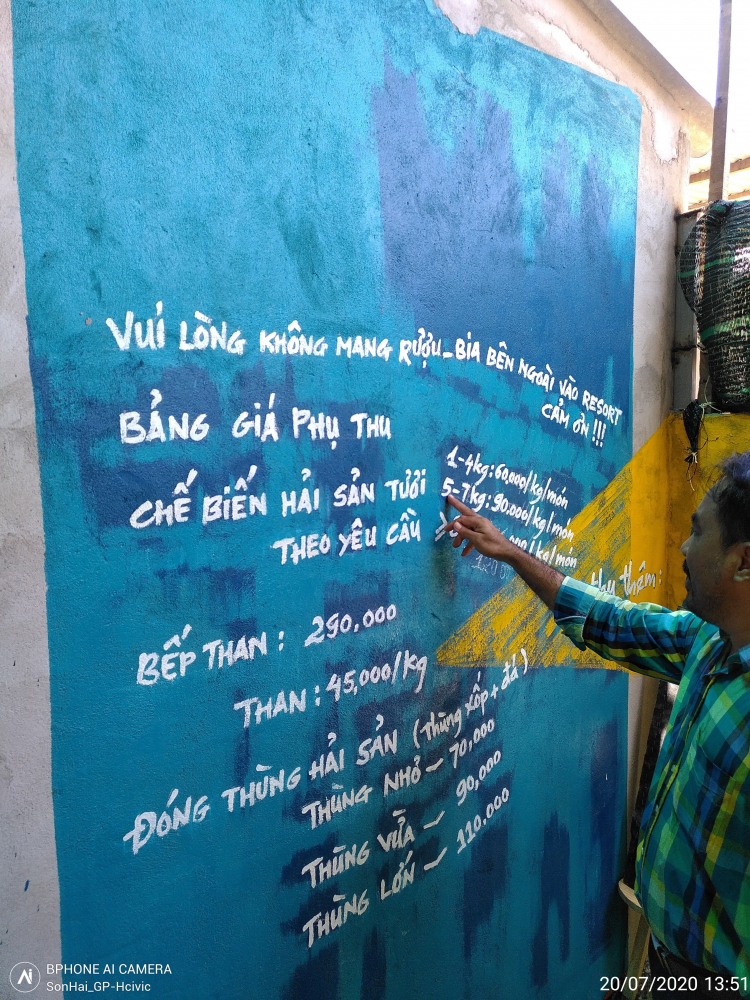 VUI LÒNG KHÔNG MANG RƯỢU_BIA BÊN NGOÀI VÀO RESORT
CẢM ƠN !!!
BẢNG GIÁ PHỤ THU
CHẾ BIẾN HẢI SẢN TƯƠI
THEO YÊU CẦU
1-4kg: 60,000/kg/món
5-7kg: 90.000/kg/món
/kg/món
thu thêm:
BẾP THAN: 290,000
THAN: 45,000/kg
ĐÓNG THÙNG HẢI SẢN (thùng xốp + đá)
THÙNG NHỎ - 70,000
THÙNG VỪA - 90,000
THÙNG LỚN - 110.000
BPHONE AI CAMERA
SonHai_GP-Hcivic
20/07/2020 13:51